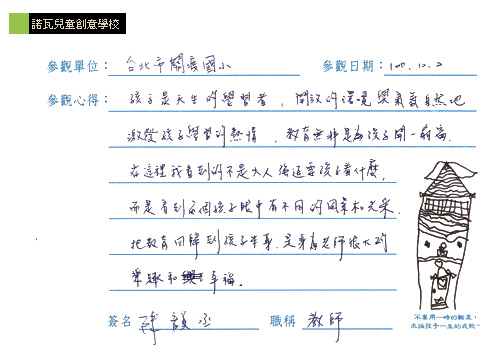 諾瓦兒童創意學校
參觀單位： 台北市關渡國小 參觀日期： 100.12.2
參觀心得： 孩子是天生的學習者，開放的環境與氣氛自然地
激發孩子學習的熱情，教育無非是為孩子開一扇窗.
在這裡我看到的不是大人強迫要孩子看什麼，
而是看到每個孩子眼中有不同的風景和光采.
把教育回歸到孩子本身，是身為老師很大的
樂趣和幸福.
簽名 陳 職稱 教師
不要用一時的輸贏，
來論孩子一生的成敗。